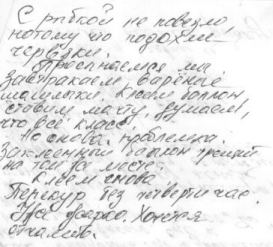 С рыбкой не повезло,
потому что подохли
червячки.
Просыпаемся мы
Завтракаем, варёные
макароны. Клеем баллон
ставим мачту, думаем,
что всё класс.
Но снова проблема
Заклеенный баллон
на том же месте.
Клеем снова
Перекур без четверти час.
Уже жарко. Хочется